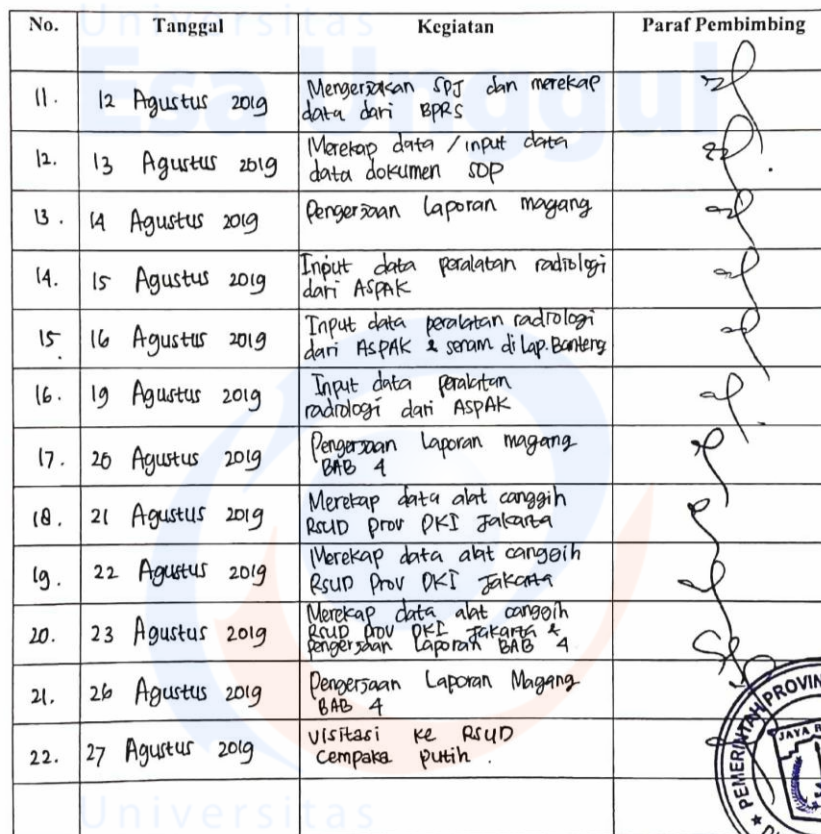 Universitas
Esa Unggul
No. Tanggal Kegiatan Paraf Pembimbing
11. 12 Agustus 2019 Mengerjakan SPJ dan merekap
data dari BPRS
12. 13 Agustus 2019 Merekap data / input data
data dokumen SOP
13. 14 Agustus 2019 Pengerjaan Laporan magang
14. 15 Agustus 2019 Input data peralatan radiologi
dari ASPAK
15. 16 Agustus 2019 Input data peralatan radiologi
dari ASPAK & senam di Lap. Banteng
16. 19 Agustus 2019 Input data peralatan
radiologi dari ASPAK
17. 20 Agustus 2019 Pengerjaan Laporan magang
BAB 4
18. 21 Agustus 2019 Merekap data alat canggih
RSUD Prov DKI Jakarta
19. 22 Agustus 2019 Merekap data alat canggih
RSUD Prov DKI Jakarta
20. 23 Agustus 2019 Merekap data alat canggih
RSUD Prov DKI Jakarta &
pengerjaan Laporan BAB 4
21. 26 Agustus 2019 Pengerjaan Laporan Magang
BAB 4
22. 27 Agustus 2019 Visitasi ke RSUD
Cempaka Putih.
PEMERINTAH PROVIN
JAYA R
Universitas